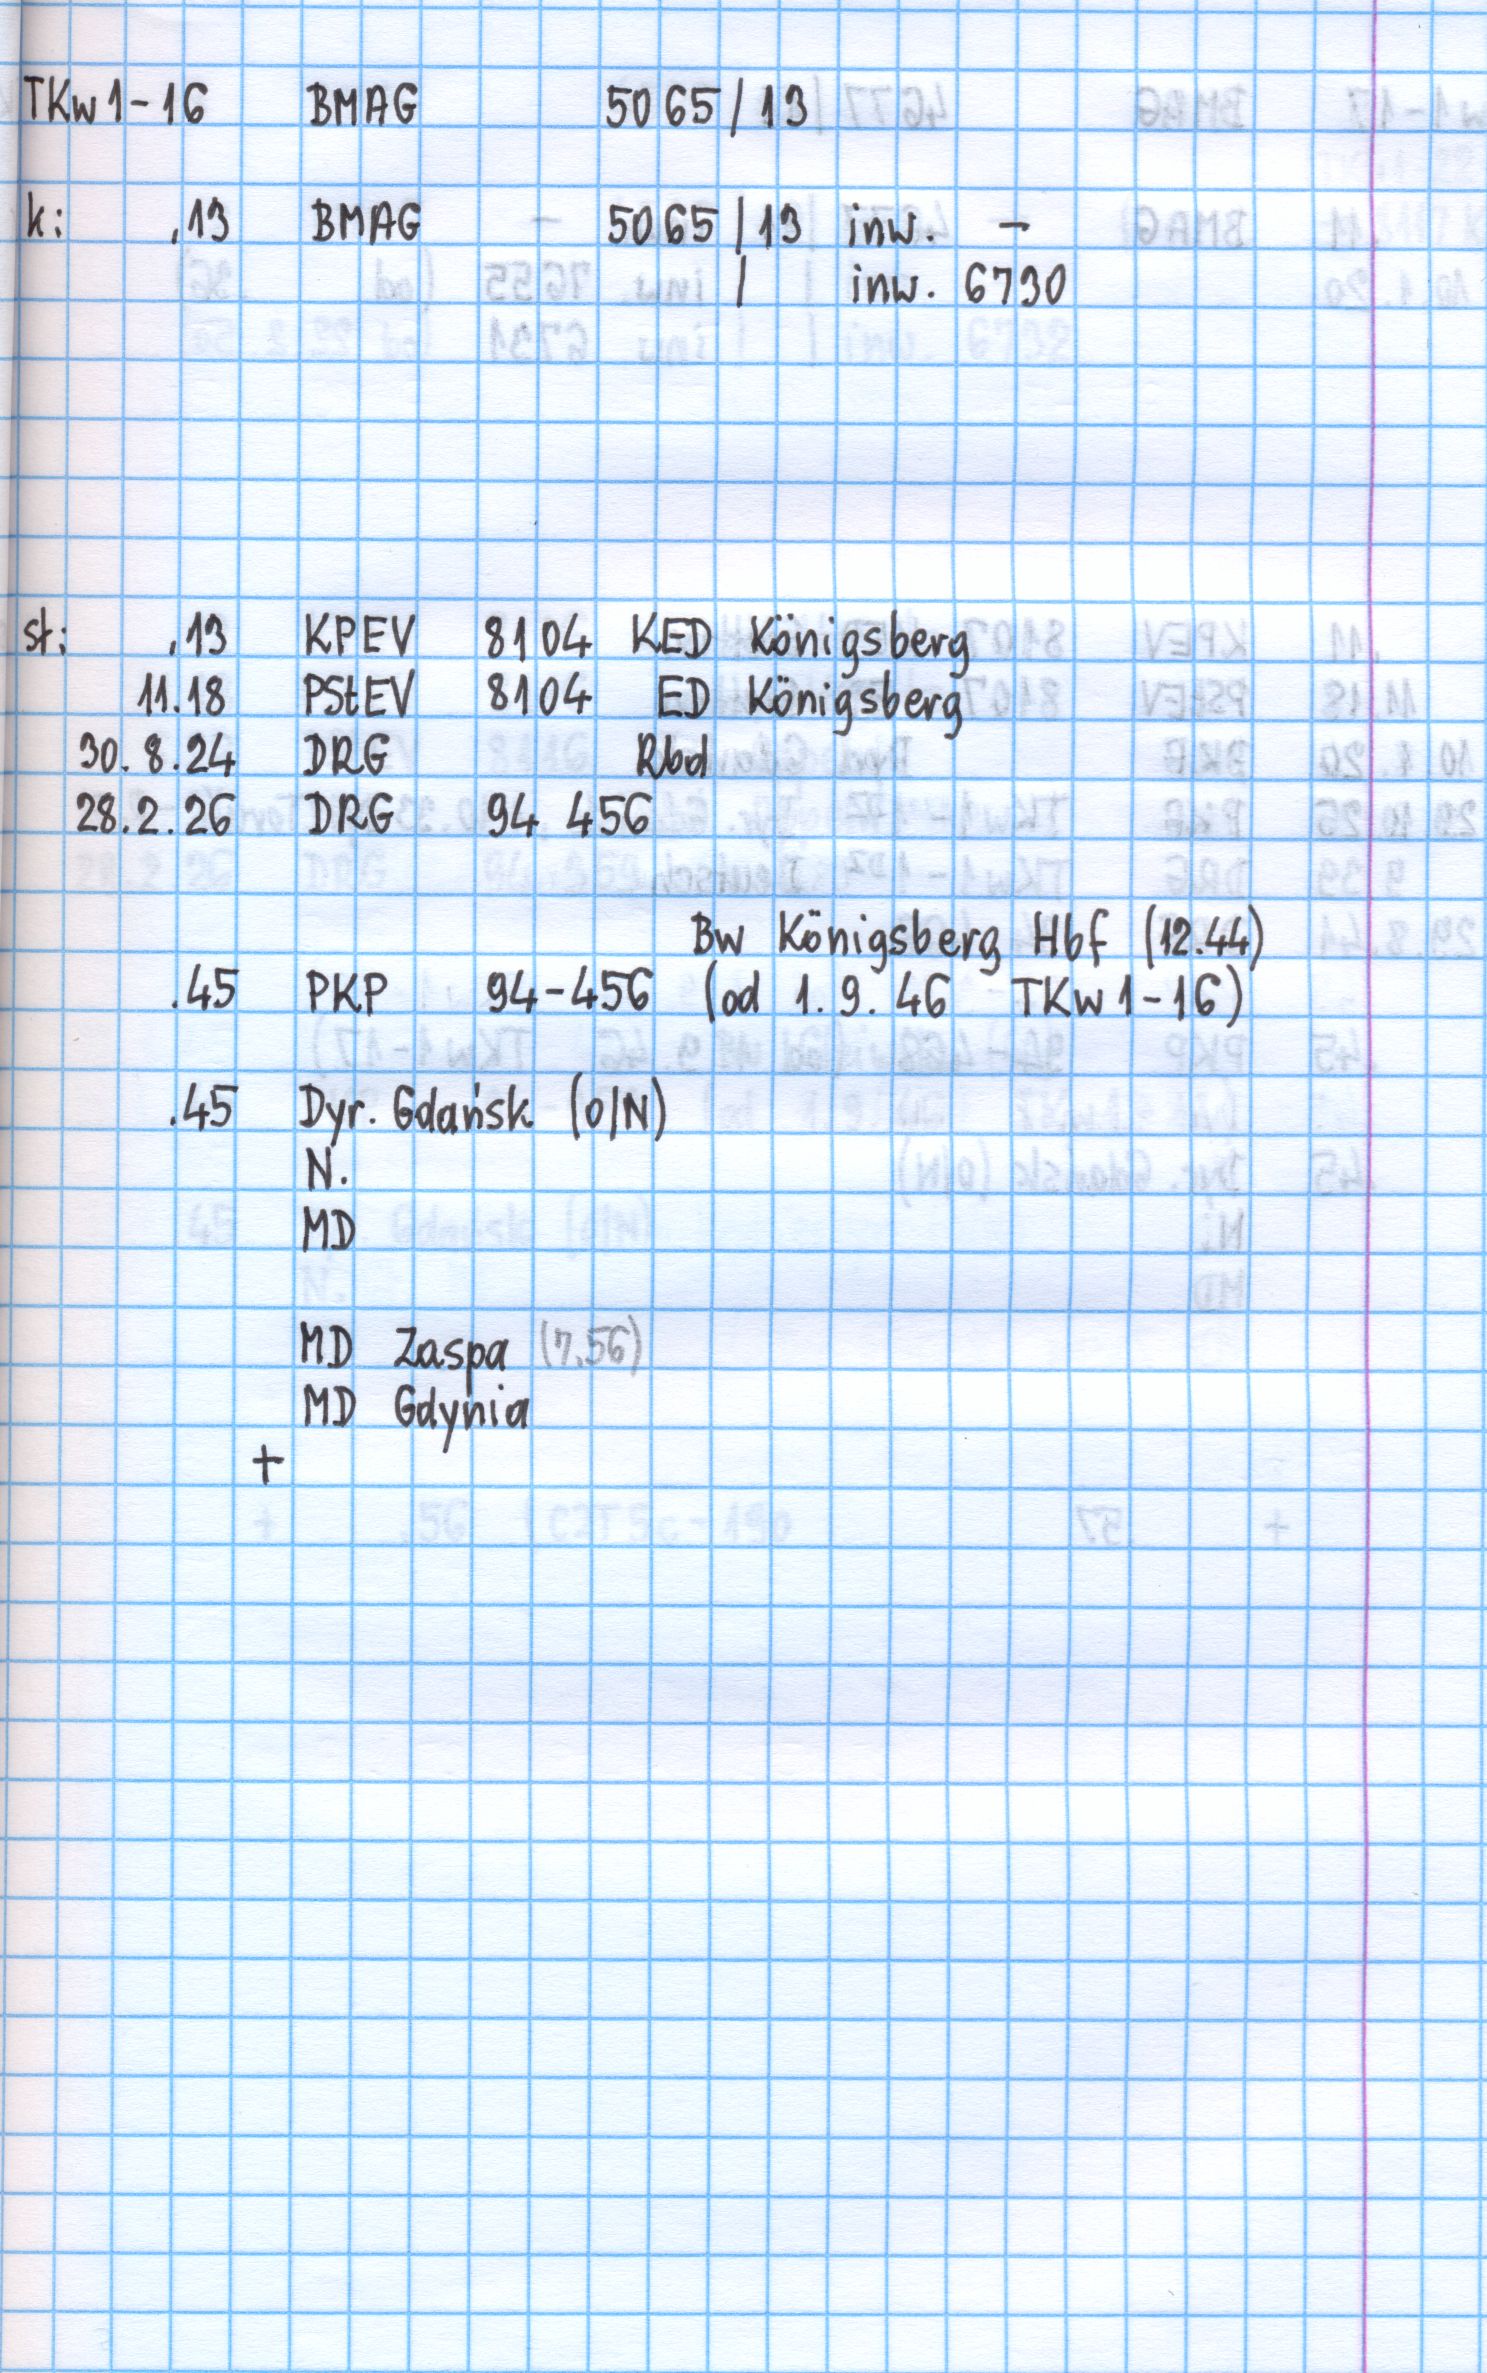 TKw1-16 BMAG 5065/13
k: .13 BMAG 5065/13 inw. -
/ inw. 6730
st: .13 KPEV 8104 KED Königsberg
11.18 PStEV 8104 ED Königsberg
30.8.24 DRG Rbd
28.2.26 DRG 94 456
Bw Königsberg Hbf (12.44)
.45 PKP 94-456 (od 1.9.46 TKw1-16)
.45 Dyr. Gdańsk (O/N)
N.
MD
MD Zaspa (7.56)
MD Gdynia
+